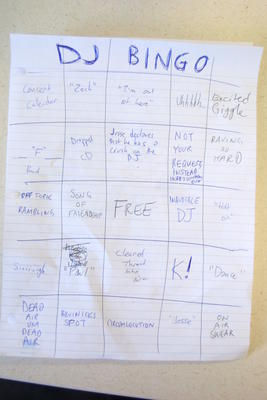 DJ BINGO
Concert
Calendar
"Zach"
"I'm out
of here"
Uhhhhh
Excited
Giggle
"F"
Dropped
CD
Jesse declares
that he has a
crush on the
DJ
NOT
YOUR
REQUEST
INSTEAD
RAVING
SO
HARD
OFF TOPIC
RAMBLING
SONG
OF
FRIENDSHIP
FREE
INAUDIBLE
DJ
"Hold
on"
"Paul"
Cleared
Throat
K!
"Dance"
DEAD
AIR
SPOT
"Jesse"
ON
AIR
SWEAR